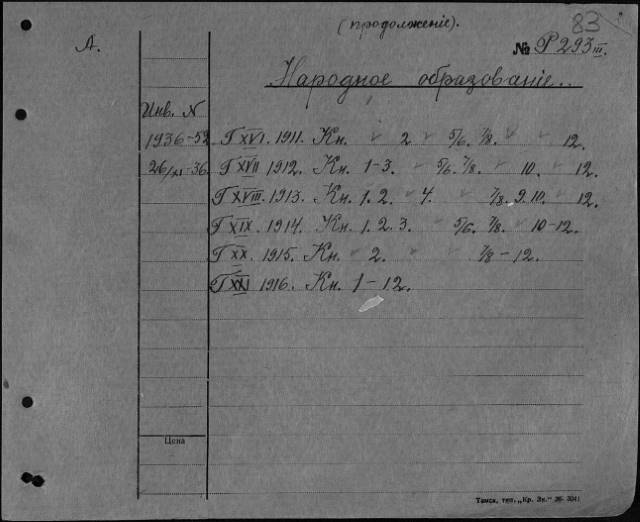 (продолженіе). 83
А. № Р 293 III.
Народное образованіе.
Инв. N
1936-52 Г XVI. 1911. Кн. ✓ 2 ✓ 5/6. 7/8. ✓ ✓ 12.
26/XI-36. Г XVII 1912. Кн. 1-3. ✓ 5/6. 7/8. ✓ 10. ✓ 12.
Г XVIII. 1913. Кн. 1. 2. ✓ 4. ✓ 7/8. 9. 10. ✓ 12.
Г XIX. 1914. Кн. 1. 2. 3. ✓ 5/6. 7/8. ✓ 10-12.
Г XX. 1915. Кн. ✓ 2. ✓ ✓ 7/8 - 12.
Г XXI 1916. Кн. 1 - 12.
Цена
Томск, тип. „Кр. Зн."